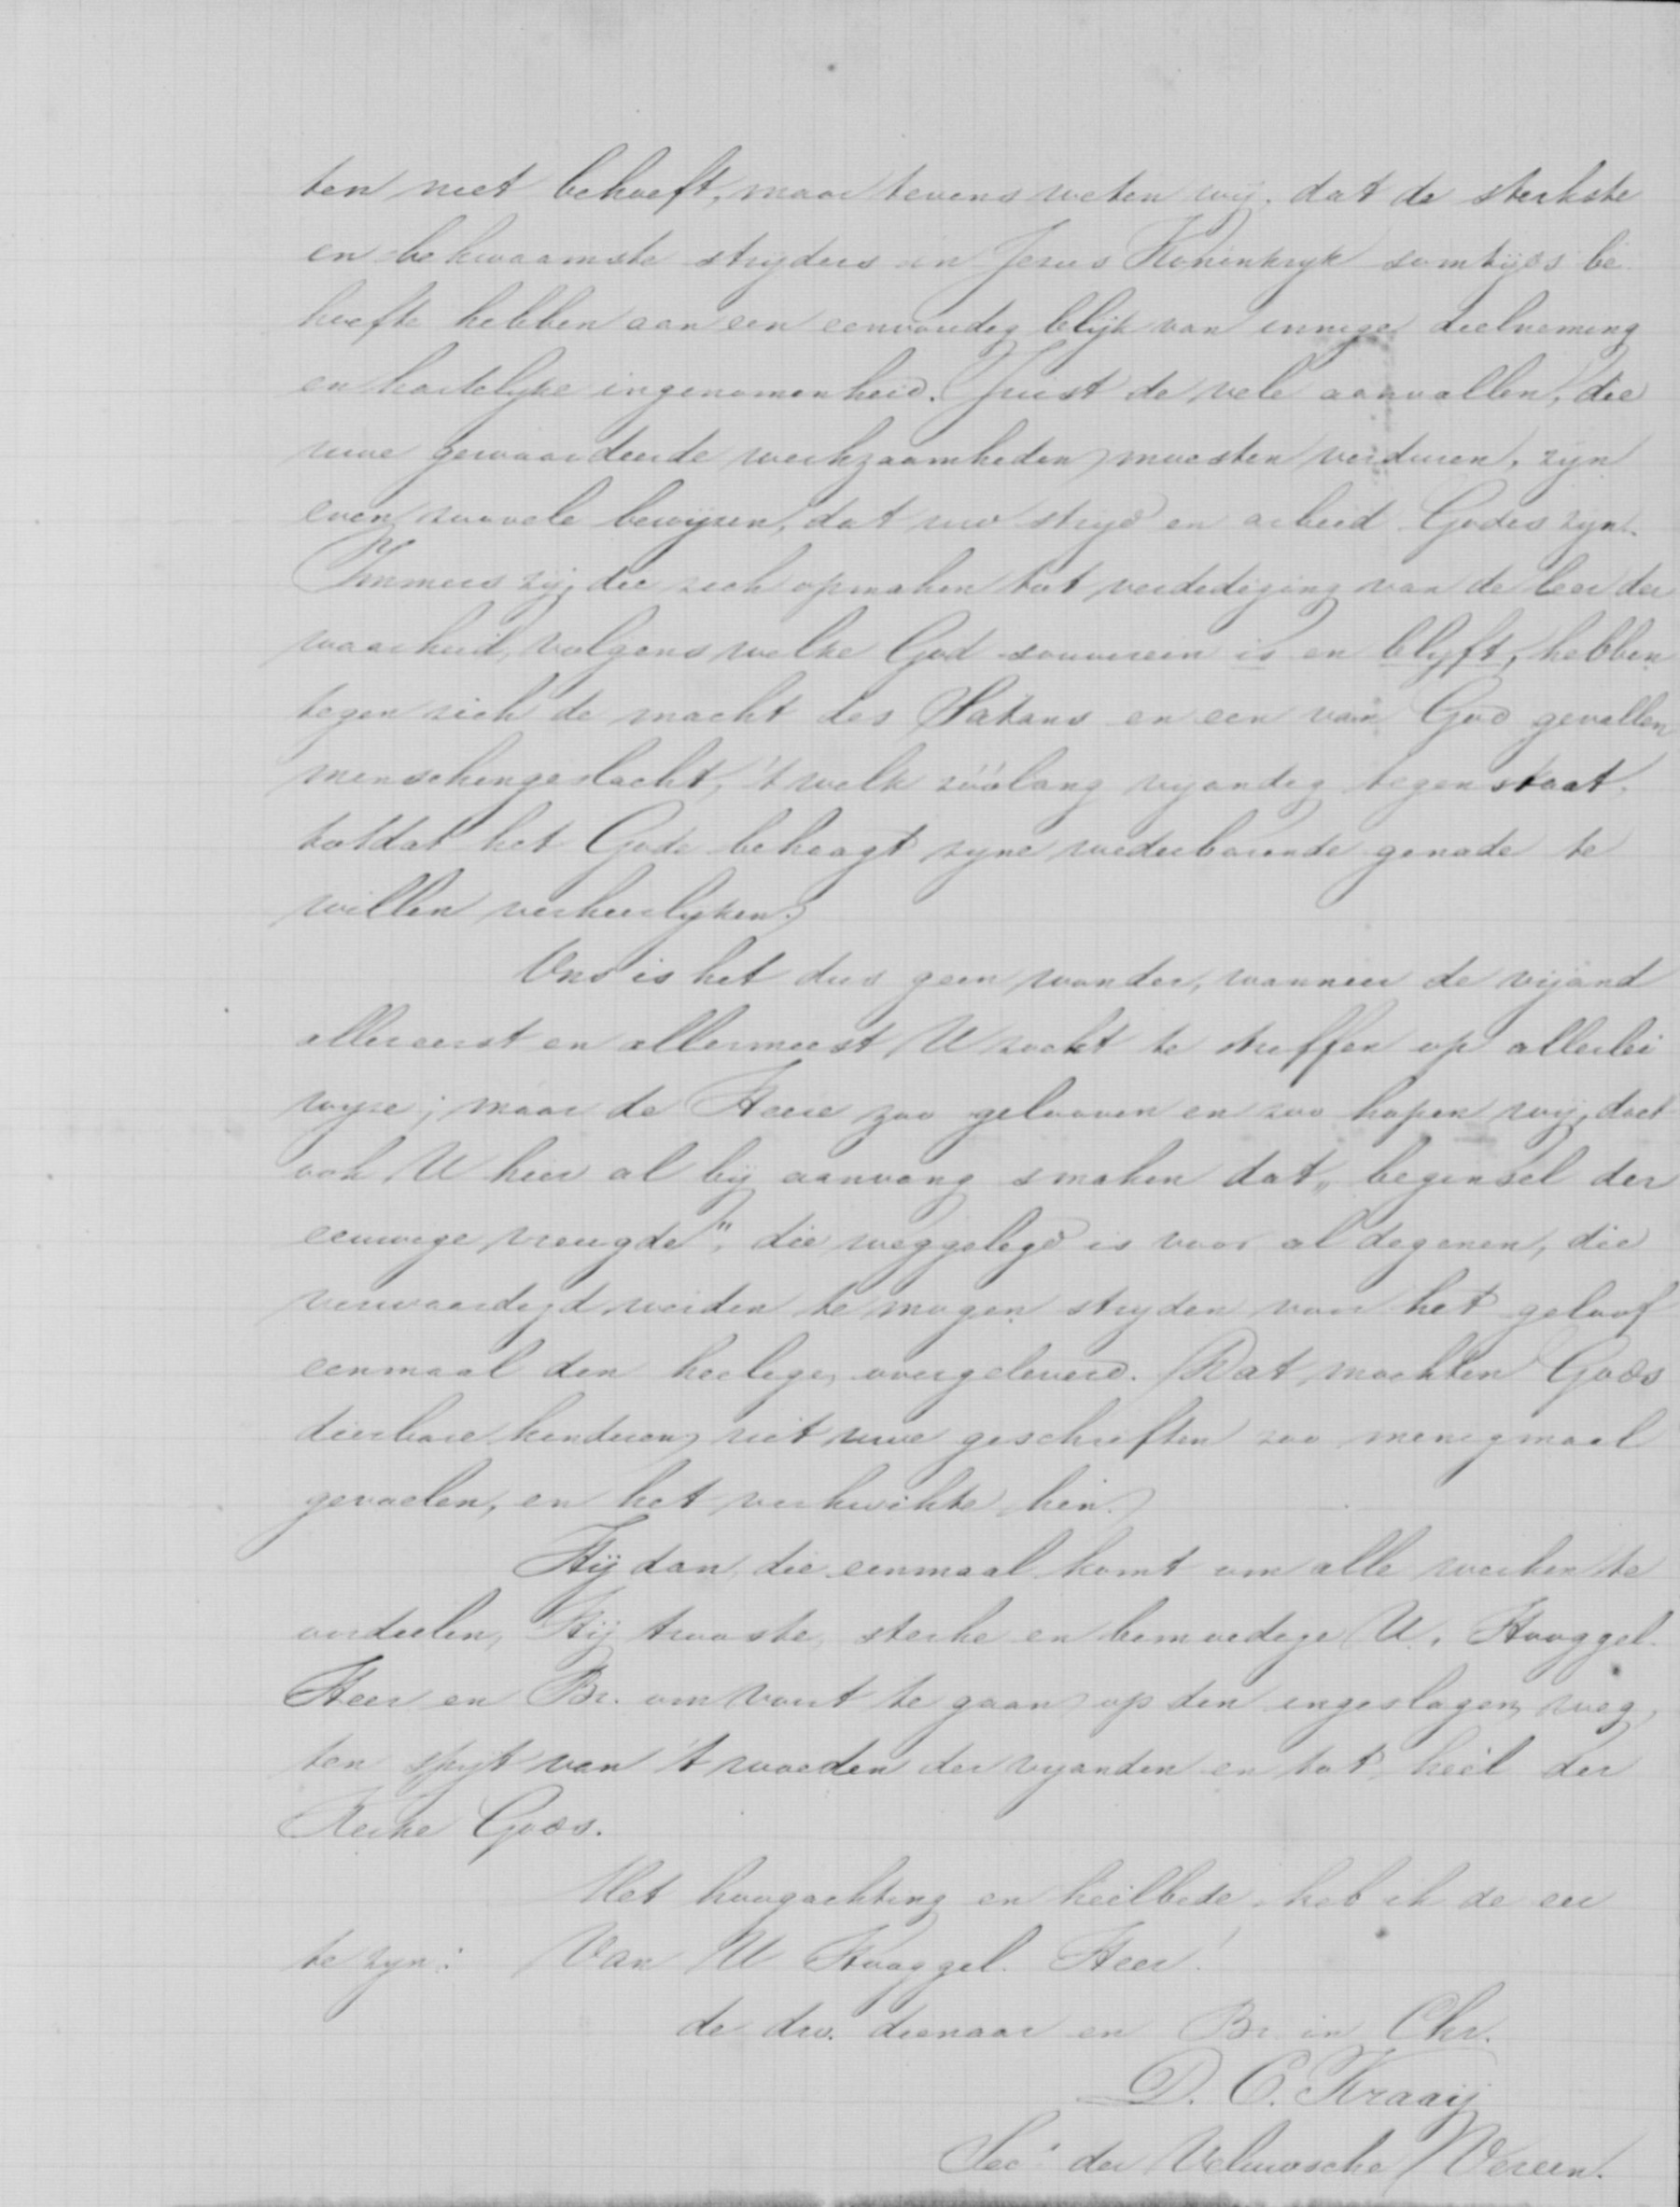 ten niet behoeft, maar tevens weten wij, dat de sterkste
en bekwaamste stryders in Jesus Koninkryk somtijds be
hoefte hebben aan een eenvoudig blijk van innige deelneming
en hartelyke ingenomenheid. Juist de vele aanvallen, die
uwe gewaardeerde werkzaamheden moesten verduren, zyn
even zoovele bewijzen, dat uw stryd en arbeid Godes zyn.
Immers zij, die zich opmaken tot verdediging van de leer der
waarheid, volgens welke God souverein is en blyft, hebben
tegen zich de macht des Satans en een van God gevallen
menschengeslacht, 't welk zóólang vyandig tegenstaat,
totdat het Gode behaagt zyne wederbarende genade te
willen verheerlyken.
Ons is het dus geen wonder, wanneer de vijand
allereerst en allermeest U zoekt te treffen op allerlei
wyze; maar de Heere zoo gelooven en zoo hopen wij, doet
ook U hier al bij aanvang smaken dat „beginsel der
eeuwige vreugde", die weggelegd is voor al degenen, die
verwaardigd werden te mogen stryden voor het geloof
eenmaal den heilige overgeleverd. Dat mochten Gods
dierbare kinderen uit uwe geschriften zoo menigmaal
gevoelen, en het verkwikte hen.
Hij dan, die eenmaal komt om alle werken te
oordeelen, Hij trooste, sterke en bemoedige U, Hooggel.
Heer en Br. om voort te gaan op den ingeslagen weg,
ten spyt van 't woeden der vyanden en tot heil der
Kerke Gods.
Met hoogachting en heilbede, heb ik de eer
te zyn: Van U Hooggel. Heer!
de dw. dienaar en Br. in Chr.
D. C. Kraaij
Sec. der Veluwsche Vereen.